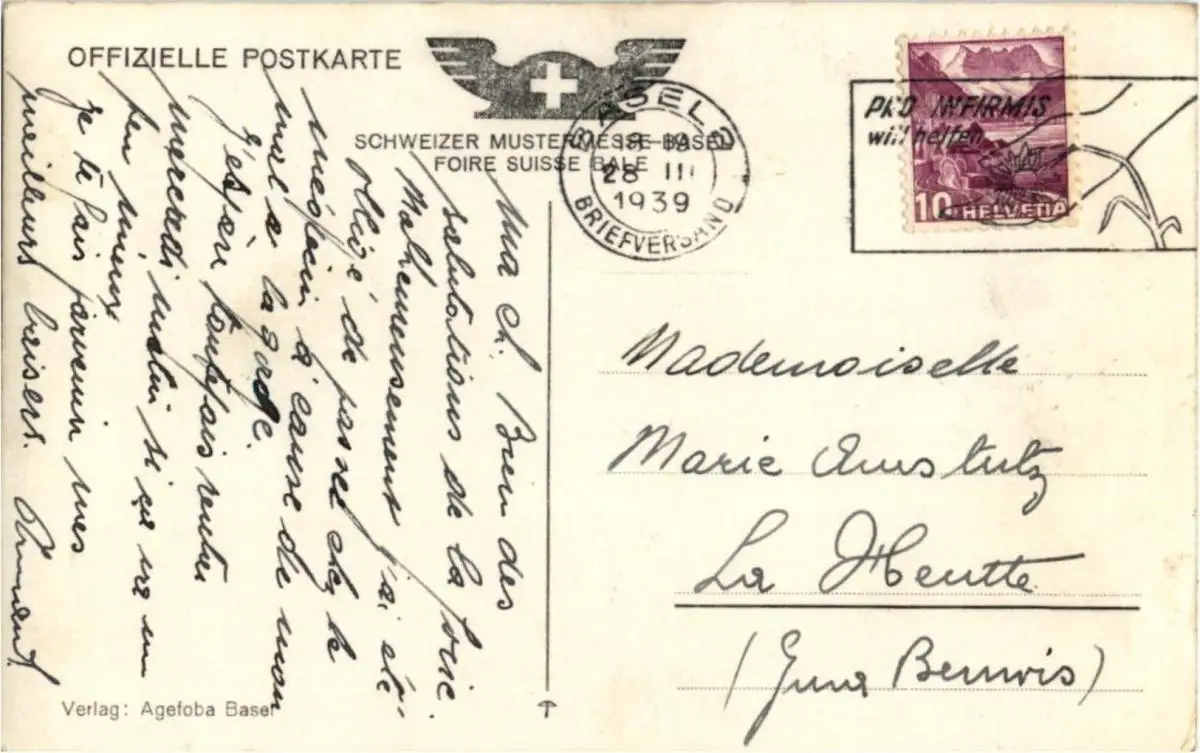 OFFIZIELLE POSTKARTE
SCHWEIZER MUSTERMESSE BASEL
FOIRE SUISSE BALE
BASEL 2
18-19
28 III
1939
BRIEFVERSAND
PRO INFIRMIS
will helfen
10 HELVETIA
Ma ch. Bien des
salutations de la foire.
Malheureusement j'ai été
obligé de passer chez le
médecin à cause de mon
mal à la gorge.
J'espère toutefois rentrer
mercredi midi si ça va un
peu mieux
Je te fais parvenir mes
meilleurs baisers.
Mademoiselle
Marie Amstutz
La Heutte
(Jura Bernois)
Verlag: Agefoba Basel